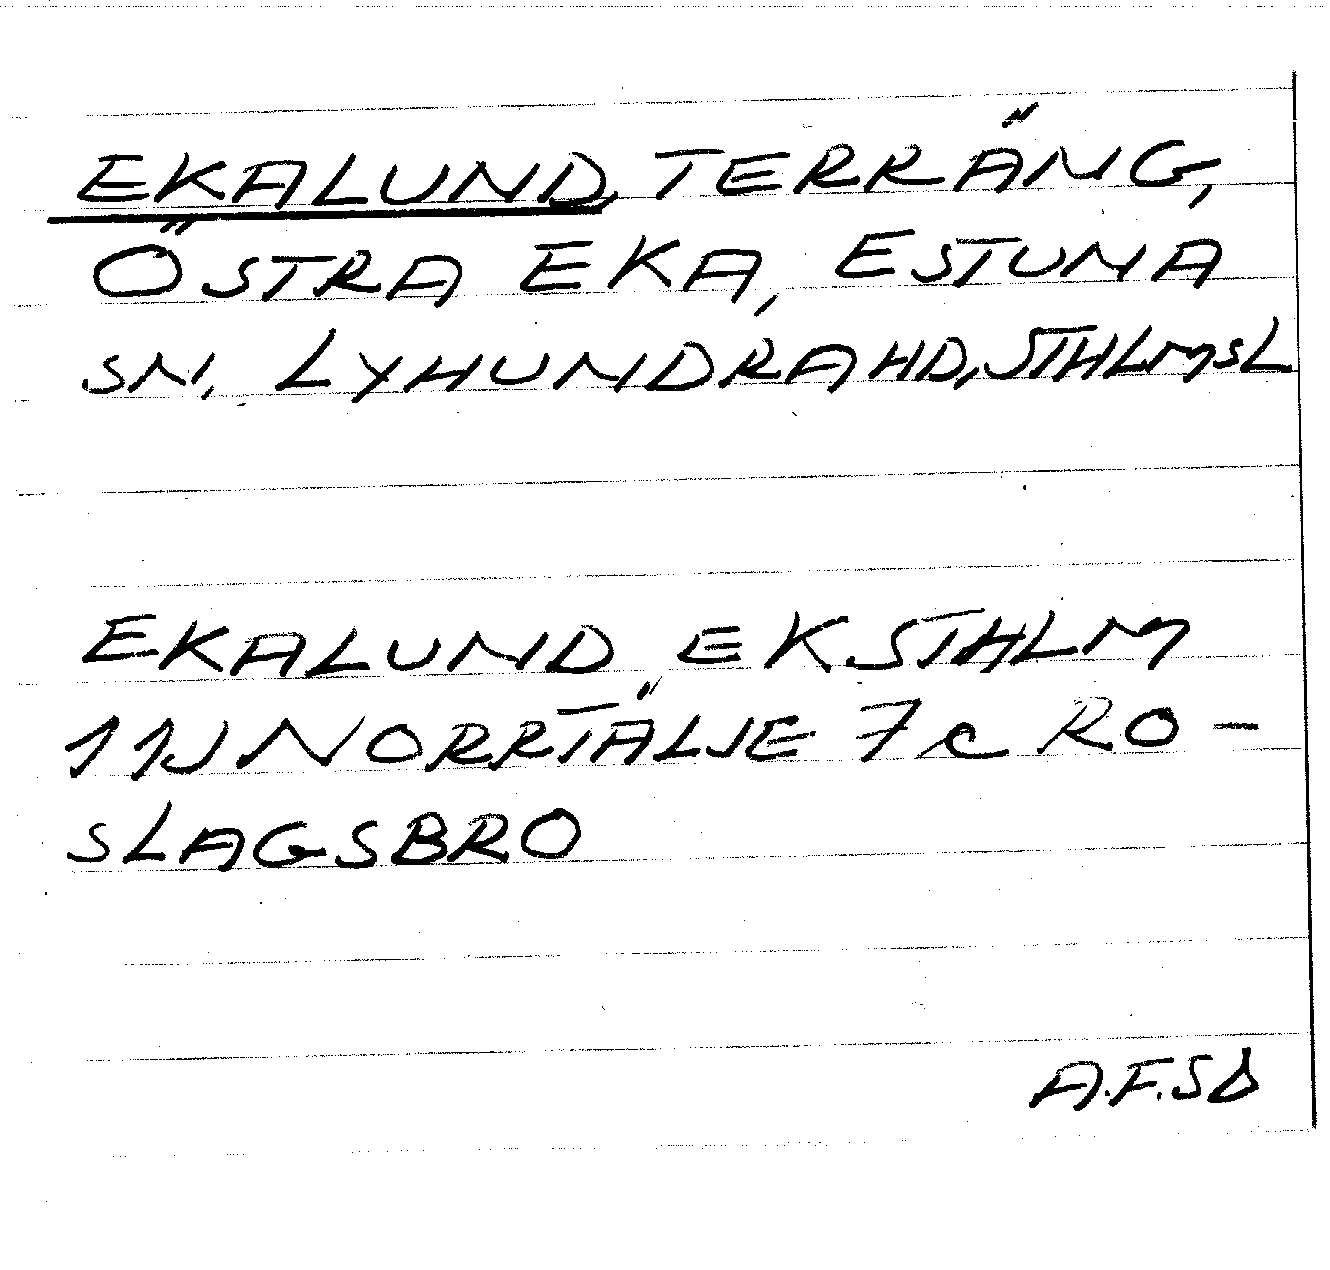 EKALUND, TERRÄNG,
ÖSTRA EKA, ESTUNA
SN, LYHUNDRA HD, STHLMSL
EKALUND EK STHLM
11J NORRTÄLJE 7c RO-
SLAGSBRO
A.F.Sb